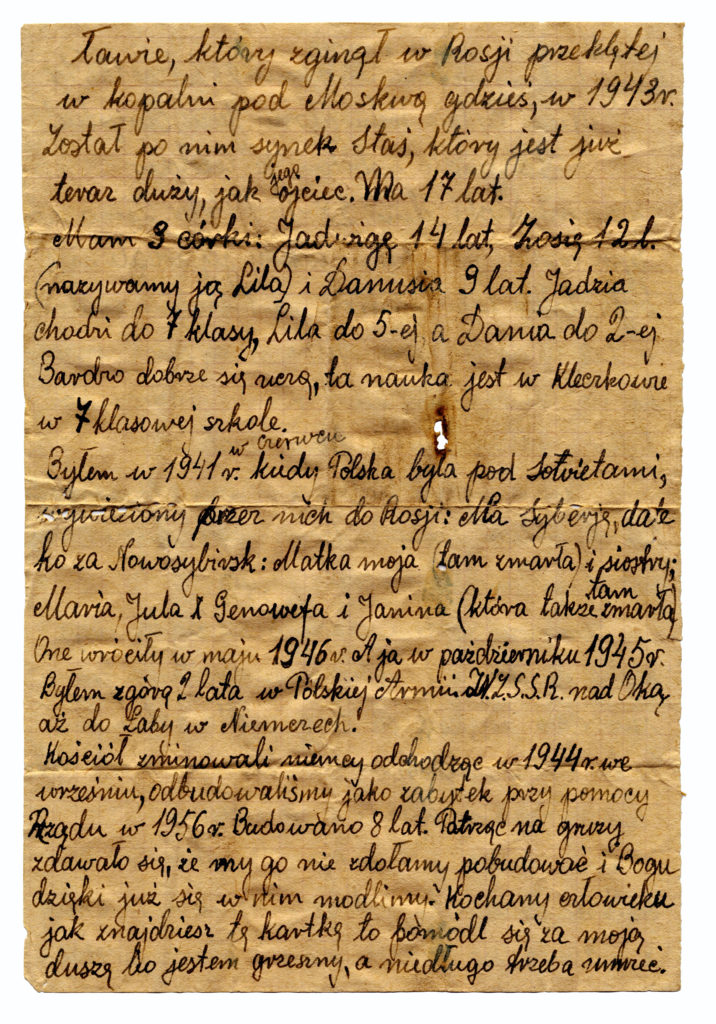 ławie, który zginął w Rosji przeklętej
w kopalni pod Moskwą gdzieś, w 1943r.
Został po nim synek Staś, który jest już
teraz duży, jak jego ojciec. Ma 17 lat.
Mam 3 córki: Jadwigę 14 lat, Zosię 12 l.
(nazywamy ją Lilą) i Danusia 9 lat. Jadzia
chodzi do 7 klasy, Lila do 5-ej, a Dania do 2-ej
Bardzo dobrze się uczą, ta nauka jest w Kleczkowie
w 7 klasowej szkole.
w czerwcu
Byłem w 1941 r. kiedy Polska była pod Sowietami,
wywieziony przez nich do Rosji: Na Syberję, dale
ko za Nowosybirsk: Matka moja (tam zmarła) i siostry;
tam
Maria, Jula i Genowefa i Janina (która także zmarła)
One wróciły w maju 1946r. A ja w październiku 1945r.
Byłem zgórą 2 lata w Polskiej Armii Z.S.S.R. nad Oką
aż do Łaby w Niemczech.
Kościół zminowali niemcy odchodząc w 1944r. we
wrześniu, odbudowaliśmy jako zabytek przy pomocy
Rządu w 1956r. Budowano 8 lat. Patrząc na gruzy
zdawało się, że my go nie zdołamy pobudować i Bogu
dzięki już się w nim modlimy. Kochany człowieku
jak znajdziesz tę kartkę to pomódl się za moją
duszę bo jestem grzeszny, a niedługo trzeba umrzeć.